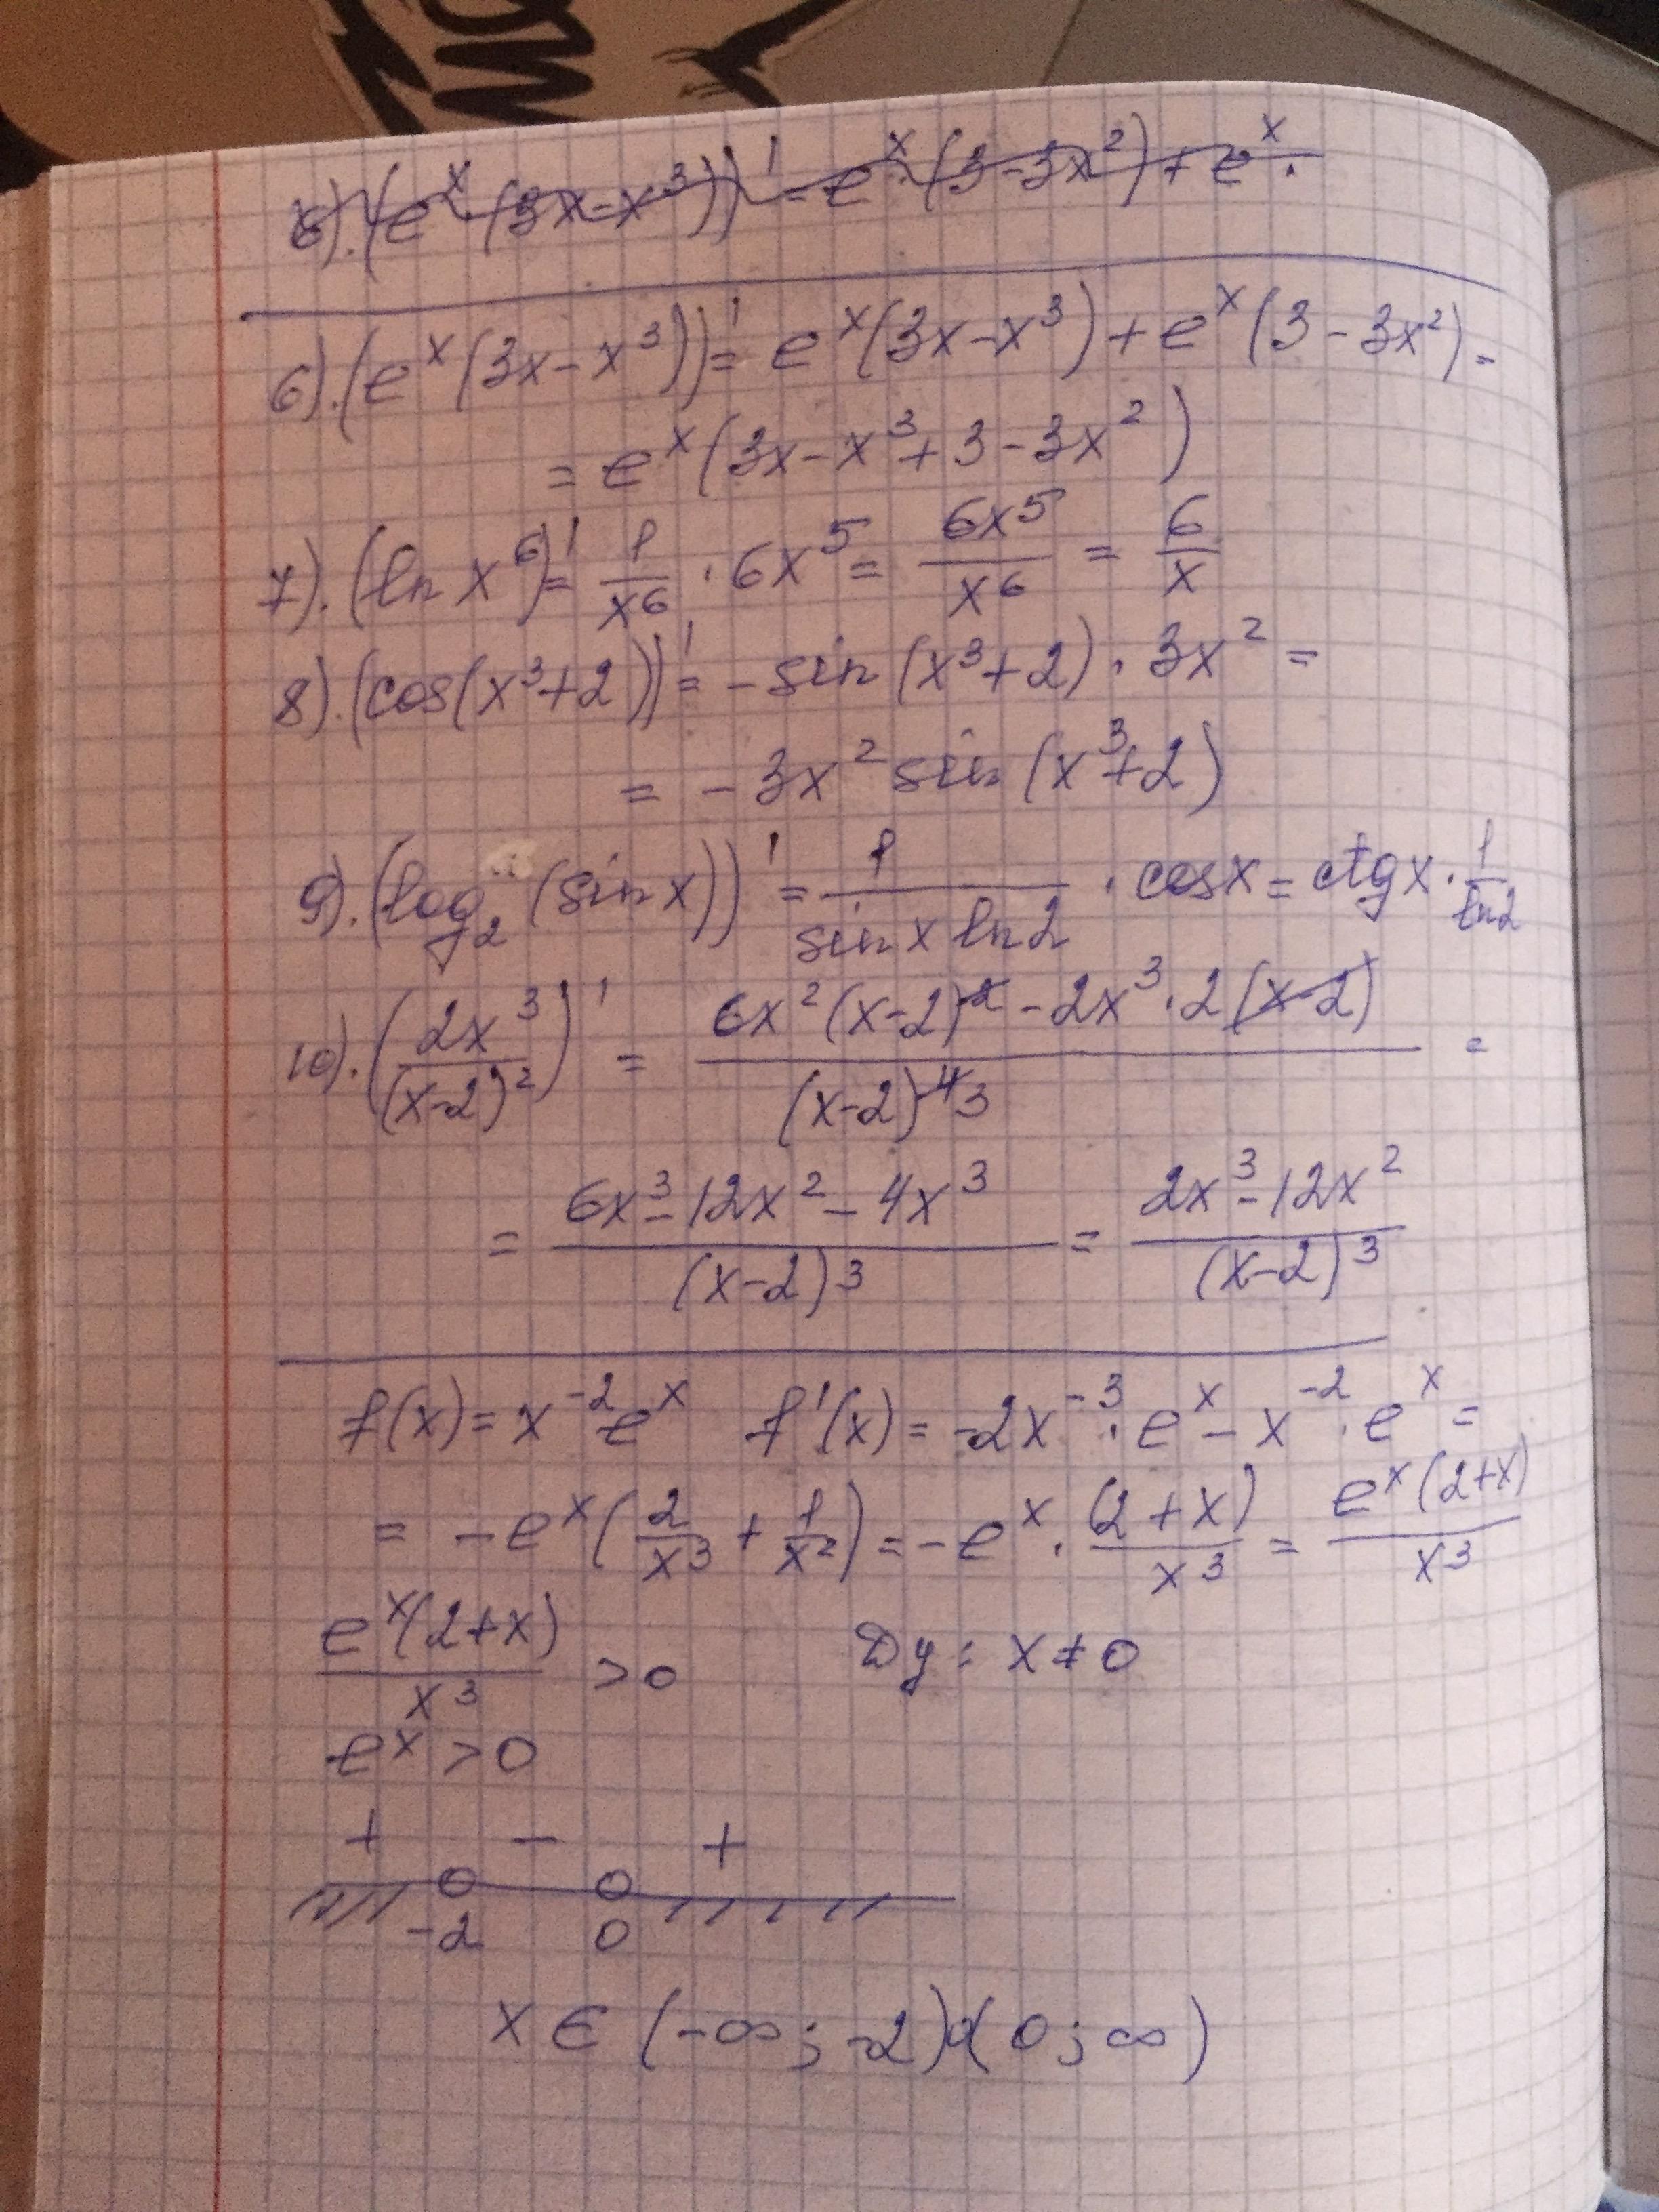 6). (e^x (3x-x^3))' = e^x·(3-3x^2) + e^x·
6). (e^x(3x-x^3))' = e^x(3x-x^3)+e^x(3-3x^2) =
= e^x(3x-x^3+3-3x^2)
7). (ln x^6)' = 1/x^6 · 6x^5 = 6x^5/x^6 = 6/x
8). (cos(x^3+2))' = -sin(x^3+2)·3x^2 =
= -3x^2 sin(x^3+2)
9). (log_2 (sin x))' = 1/(sin x ln2) · cosx = ctgx · 1/ln2
10). (2x^3/(x-2)^2)' = (6x^2(x-2)^2 - 2x^3·2(x-2))/(x-2)^4 3 =
= (6x^3-12x^2-4x^3)/(x-2)^3 = (2x^3-12x^2)/(x-2)^3
f(x)=x^-2 e^x f'(x)= -2x^-3·e^x - x^-2·e^x =
= -e^x(2/x^3 + 1/x^2) = -e^x · (2+x)/x^3 = e^x(2+x)/x^3
e^x(2+x)/x^3 >0 Dy: x≠0
e^x >0
+ - +
-2 0
x ∈ (-∞; -2)∪(0; ∞)